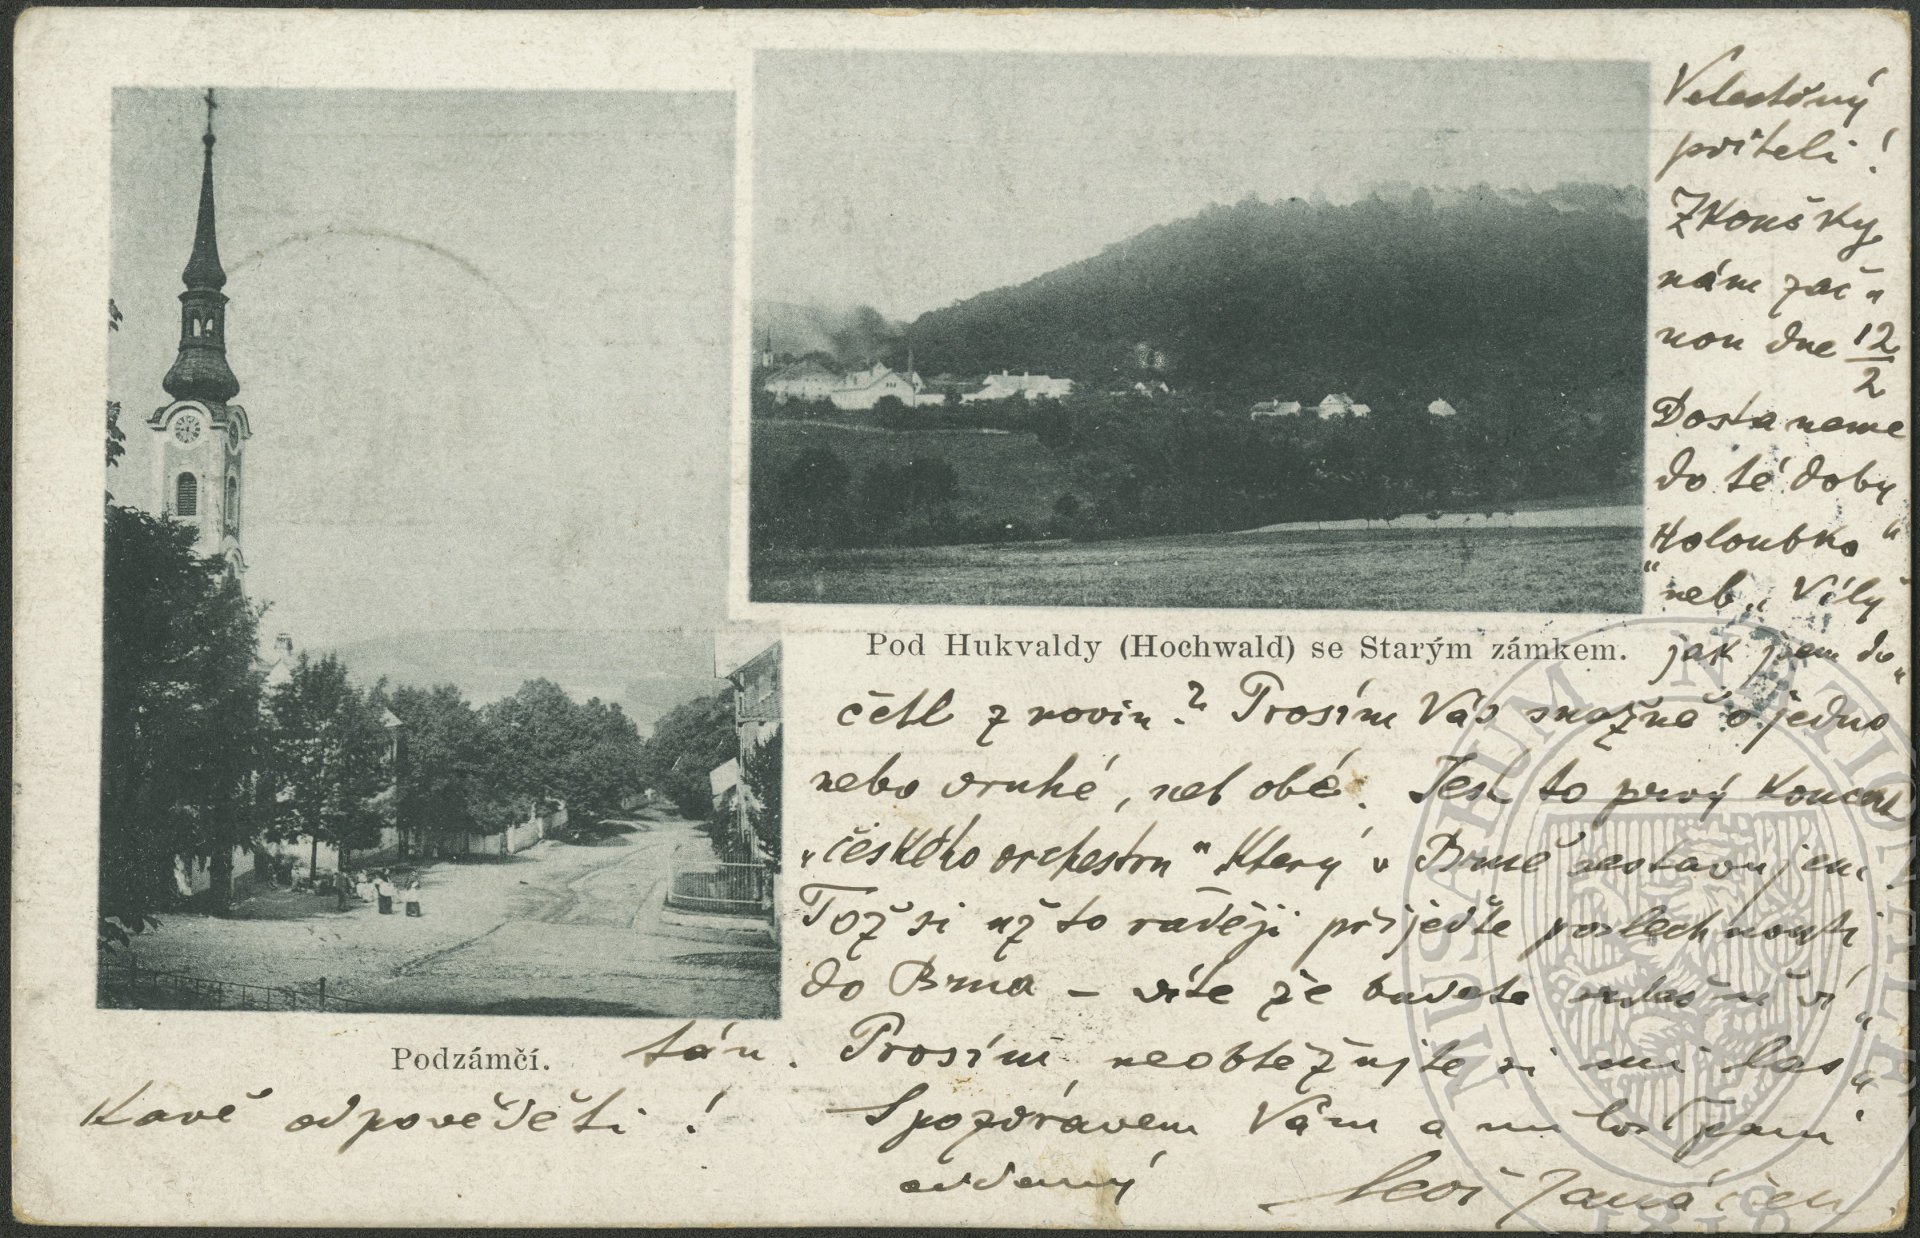 Velectěný
příteli!
Zkoušky
nám zač„
nou dne 12/2
Dostaneme
do té doby
Holoubka“
“neb „Víly“
jak jsem do„
Pod Hukvaldy (Hochwald) se Starým zámkem.
četl z novin? Prosím Vás snažně o jedno
nebo druhé, neb obé. Jest to prvý koncert
„českého orchestru“ který v Brně sestavujem.
Tož si už to raději přijeďte poslechnouti
do Brna – víte že budete srdečně ví„
Podzámčí.
tán. Prosím, neobtěžujte si mi las„
kavě odpověděti!
S pozdravem Vám a milosti paní
oddaný
Leoš Janáček
MUSAEUM NATIONALE
1818